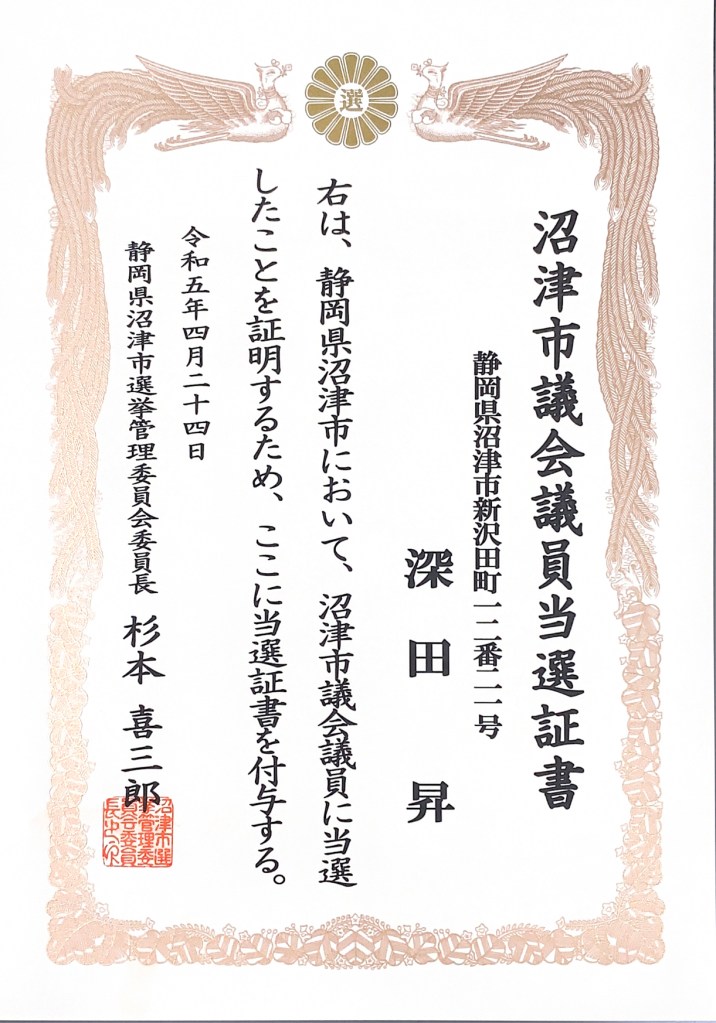 選
沼津市議会議員当選証書
静岡県沼津市新沢田町一二番二一号
深田昇
右は、静岡県沼津市において、沼津市議会議員に当選
したことを証明するため、ここに当選証書を付与する。
令和五年四月二十四日
静岡県沼津市選挙管理委員会委員長 杉本喜三郎
沼津市選
挙管理委
員会委員
長之印